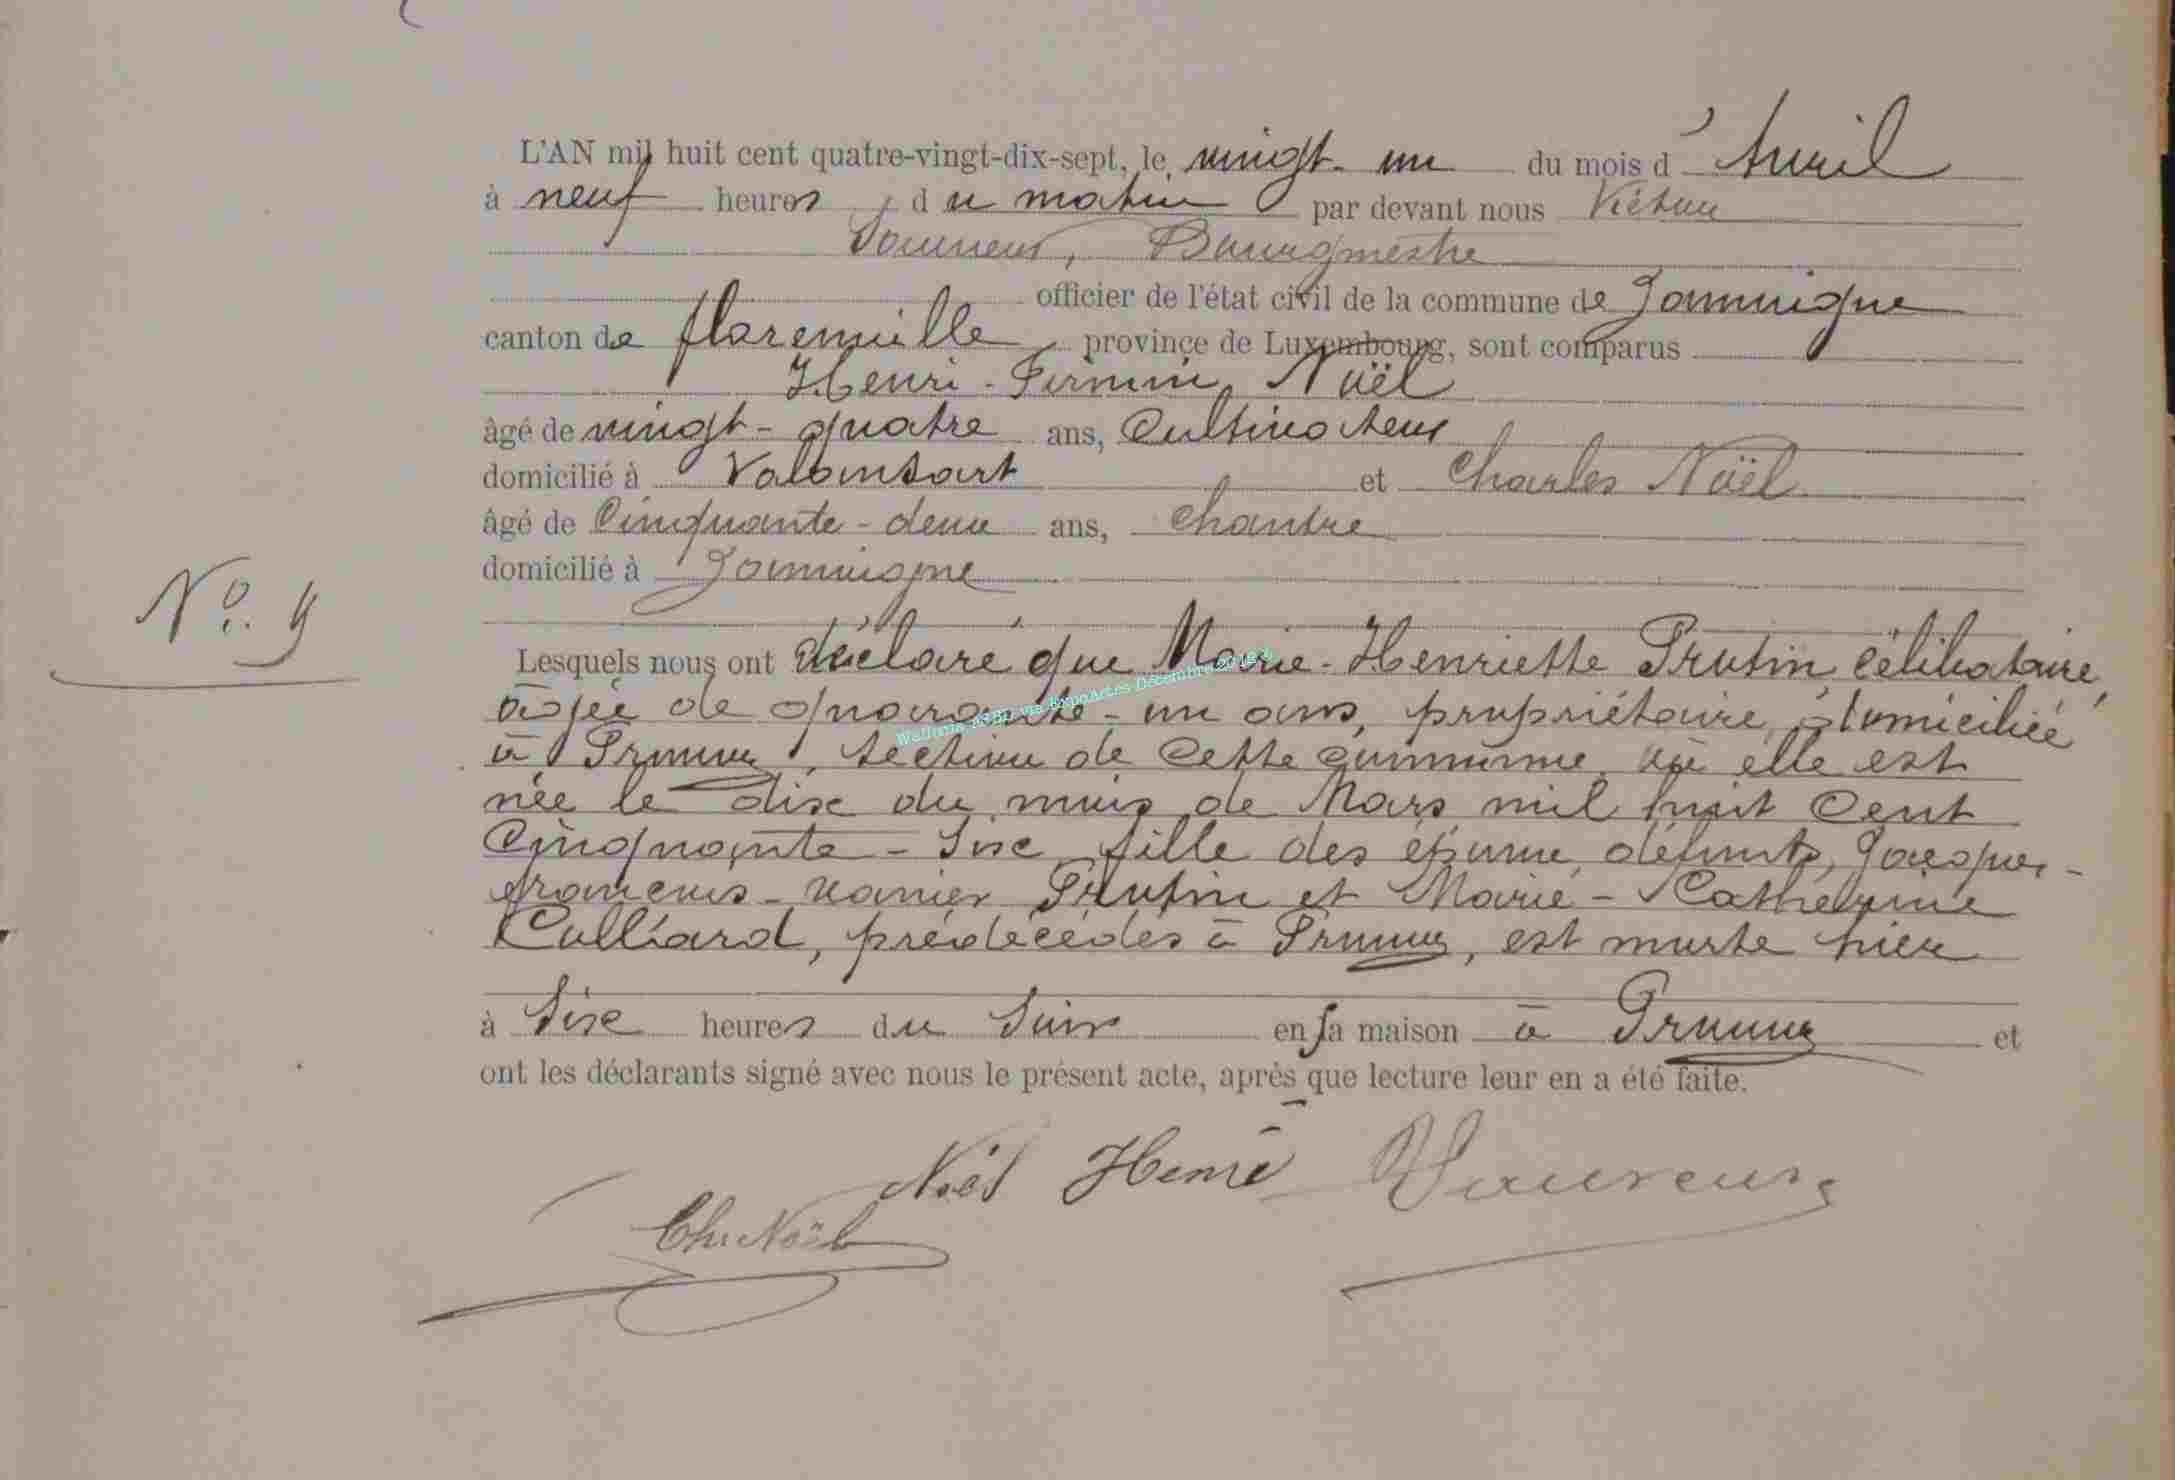 L'AN mil huit cent quatre-vingt-dix-sept, le vingt-un du mois d'Avril
à neuf heures du matin par devant nous Victor
Bourgmestre
officier de l'état civil de la commune de Jamoigne
canton de florenville province de Luxembourg, sont comparus
Henri-Firmin Noël
âgé de vingt-quatre ans, Cultivateur
domicilié à Valansart et Charles Noël
âgé de Cinquante-deux ans, Chantre
domicilié à Jamoigne
N° 9
Lesquels nous ont déclaré que Marie-Henriette Protin célibataire,
âgée de quarante-un ans, propriétaire, domiciliée
à Prouvy, section de cette commune où elle est
née le dix du mois de Mars mil huit Cent
Cinquante-Six fille des époux défunts, Jacques-
françois-xavier Protin et Marie-Catherine
Colliard, prédécédés à Prouvy, est morte hier
à Six heures du Soir en sa maison à Prouvy et
ont les déclarants signé avec nous le présent acte, après que lecture leur en a été faite.
Noël Henri
Ch. Noël